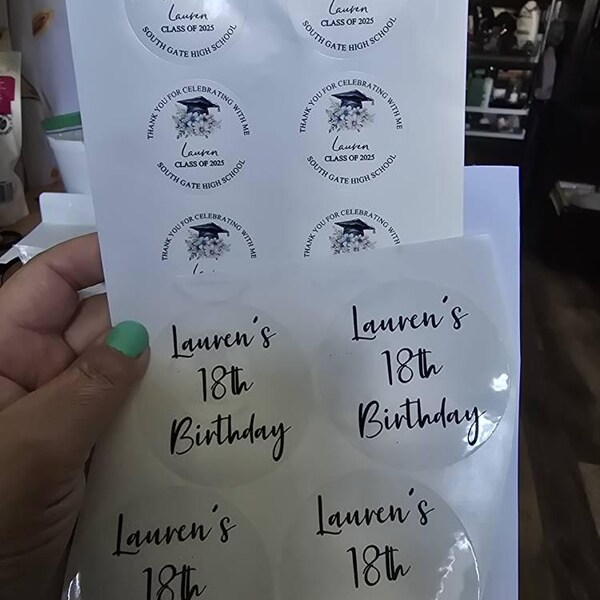 Lauren
CLASS OF 2025
SOUTH GATE HIGH SCHOOL
Lauren
CLASS OF 2025
SOUTH GATE HIGH SCHOOL
THANK YOU FOR CELEBRATING WITH ME
Lauren
CLASS OF 2025
SOUTH GATE HIGH SCHOOL
THANK YOU FOR CELEBRATING WITH ME
Lauren
CLASS OF 2025
SOUTH GATE HIGH SCHOOL
THANK YOU FOR CELEBRATING WITH ME
THANK YOU FOR CELEBRATING WITH ME
Lauren's
18th
Birthday
Lauren's
18th
Birthday
Lauren's
18th
Lauren's
18th